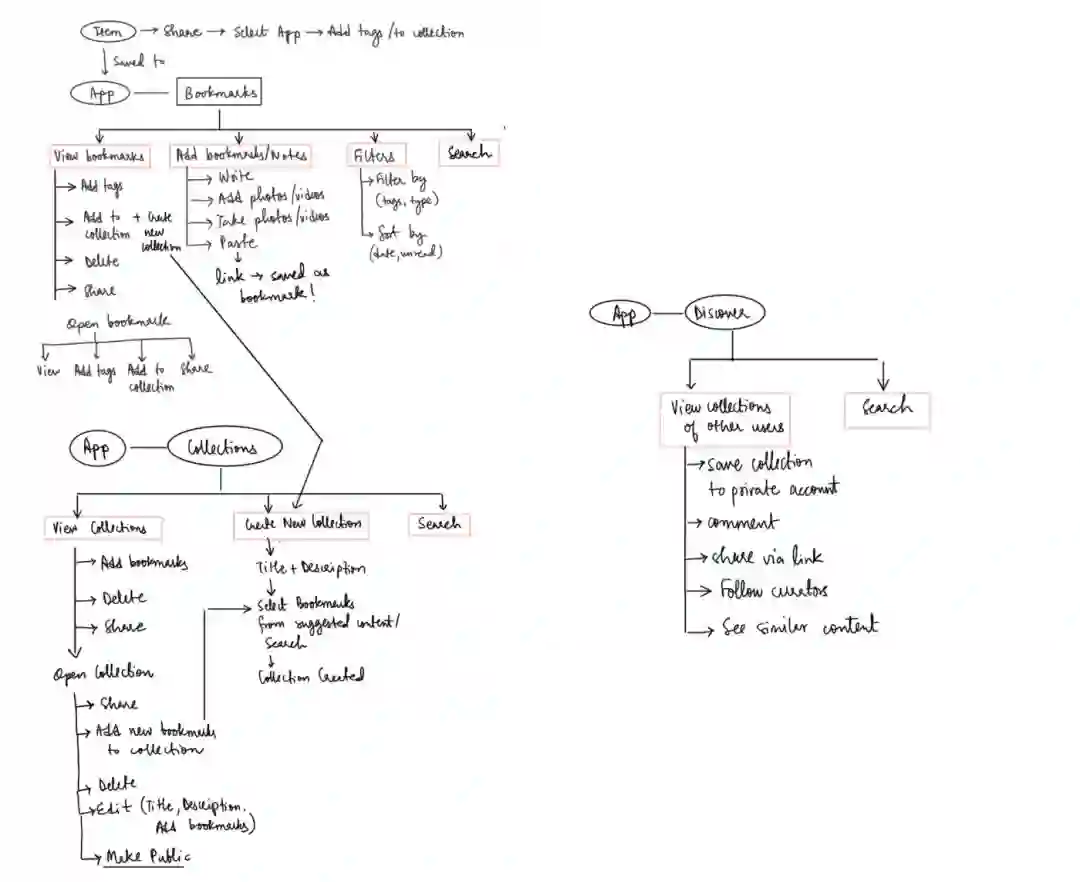 Item → Share → Select App → Add tags /to collection
Saved to
App
Bookmarks
View bookmarks
Add tags
Add to + Create
collection new
collection
Delete
Share
Open bookmark
View
Add tags
Add to
collection
Share
Add bookmarks/Notes
Write
Add photos/videos
Take photos/videos
Paste
link → saved as
bookmark!
Filters
Filter by
(tags, type)
Sort by
(date, unread)
Search
App
Collections
View Collections
Add bookmarks
Delete
Share
Open Collection
Share
Add new bookmarks
to collection
Delete
Edit (Title, Description.
Add bookmarks)
Make Public
Create New Collection
Title + Description
Select Bookmarks
from suggested content/
Search
Collection Created
Search
App
Discover
View collections
of other users
save collection
to private account
comment
share via link
Follow curators
See similar content
Search